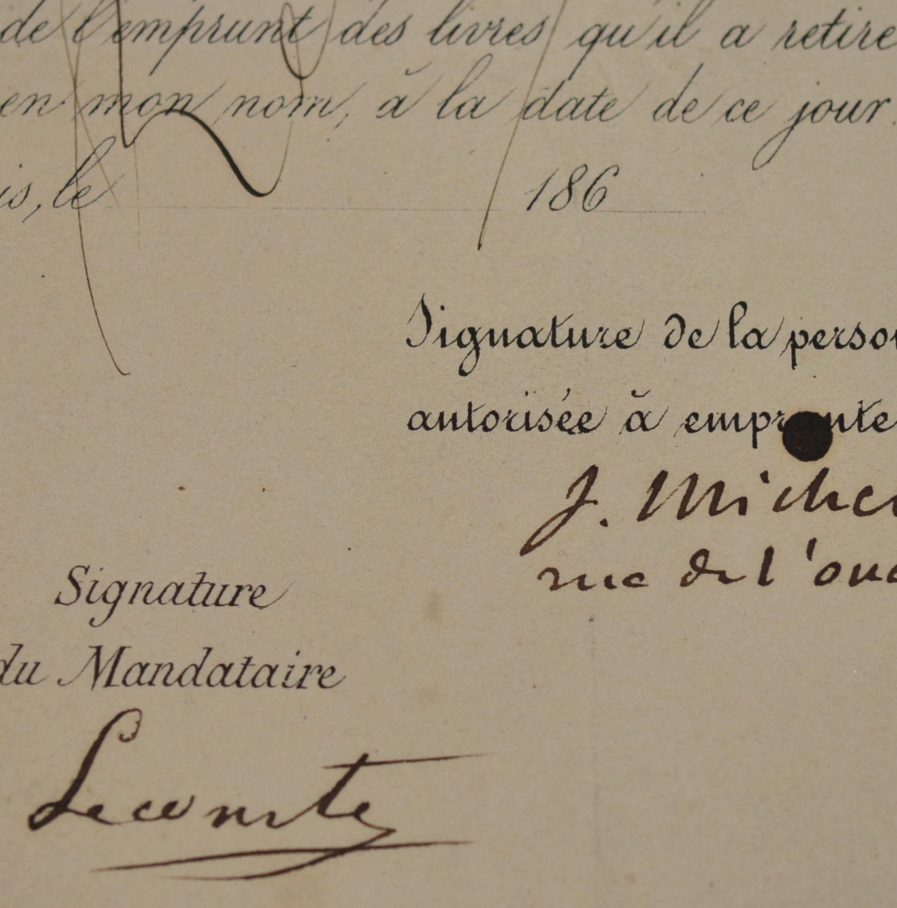 de l'emprunt des livres qu'il a retire
en mon nom, à la date de ce jour.
is, le 186
Signature de la person
autorisée à emprunte
J. Michel
rue de l'oue
Signature
du Mandataire
Lecomte